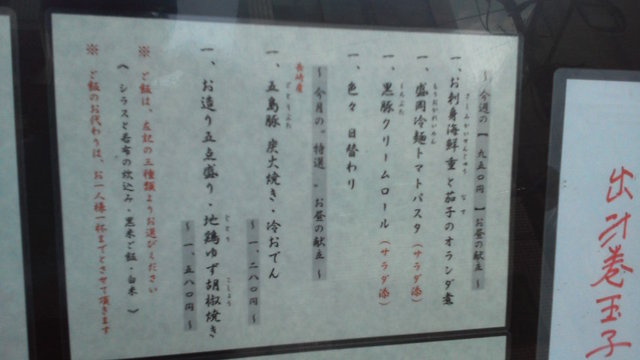 ～ 今週の【 九五〇円 】お昼の献立 ～
一、お刺身海鮮重と茄子のオランダ煮
さしみかいせんじゅう なす
一、盛岡冷麺トマトパスタ(サラダ添)
もりおかれいめん
一、黒豚クリームロール(サラダ添)
くろぶた
一、色々 日替わり
～ 今月の〝特選〟お昼の献立 ～
長崎産
一、五島豚 炭火焼き・冷おでん
ごとうぶた
～ 一、二八〇円 ～
一、お造り五点盛り・地鶏ゆず胡椒焼き
じどり こしょう
～ 一、五八〇円 ～
※ ご飯は、左記の三種類よりお選びください
〈 シラスと昆布の炊込み・黒米ご飯・白米 〉
※ ご飯のお代わりは、お一人様一杯までとさせて頂きます
出汁巻玉子